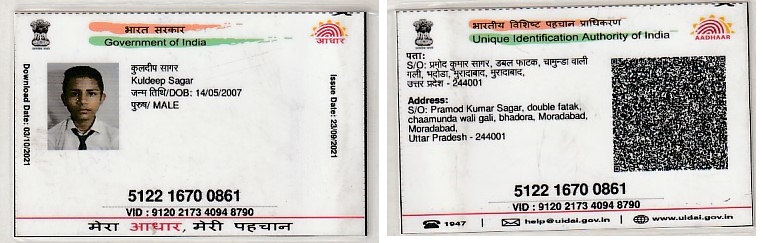 भारत सरकार
Government of India
आधार
Download Date: 03/10/2021
कुलदीप सागर
Kuldeep Sagar
जन्म तिथि/DOB: 14/05/2007
पुरुष/ MALE
Issue Date: 23/09/2021
5122 1670 0861
VID : 9120 2173 4094 8790
मेरा आधार, मेरी पहचान
भारतीय विशिष्ट पहचान प्राधिकरण
Unique Identification Authority of India
AADHAAR
पता:
S/O: प्रमोद कुमार सागर, डबल फाटक, चामुन्डा वाली
गली, भदोडा, मुरादाबाद, मुरादाबाद,
उत्तर प्रदेश - 244001
Address:
S/O: Pramod Kumar Sagar, double fatak,
chaamunda wali gali, bhadora, Moradabad,
Moradabad,
Uttar Pradesh - 244001
5122 1670 0861
VID : 9120 2173 4094 8790
1947 | help@uidai.gov.in | www.uidai.gov.in